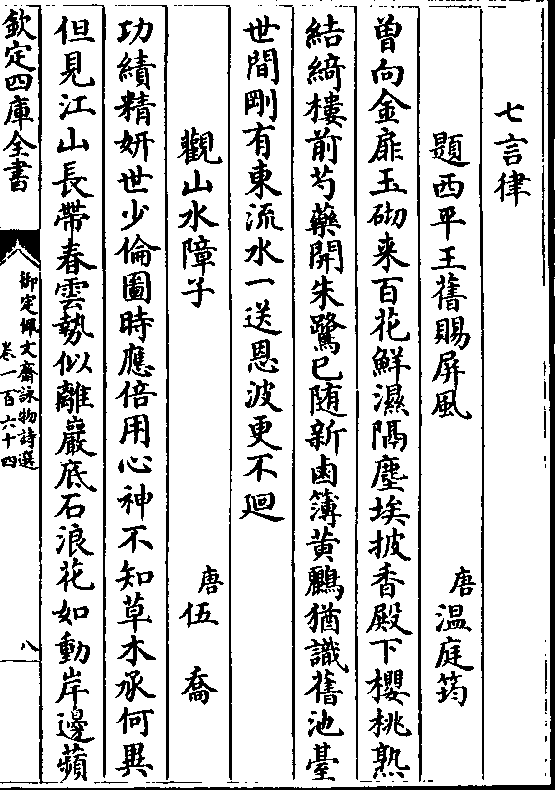 七言律
題西平王舊賜屏風
唐溫庭筠
曽向金扉玉砌来百花鮮濕隔塵埃披香殿下櫻桃熟
結綺樓前芍藥開朱鷺已随新鹵簿黄鸝猶識舊池臺
世間剛有東流水一送恩波更不迴
觀山水障子
唐伍喬
功績精妍世少倫圖時應倍用心神不知草木承何異
但見江山長帶春雲勢似離巖底石浪花如動岸邊蘋
欽定四庫全書
御定佩文齋詠物詩選
卷一百六十四
八